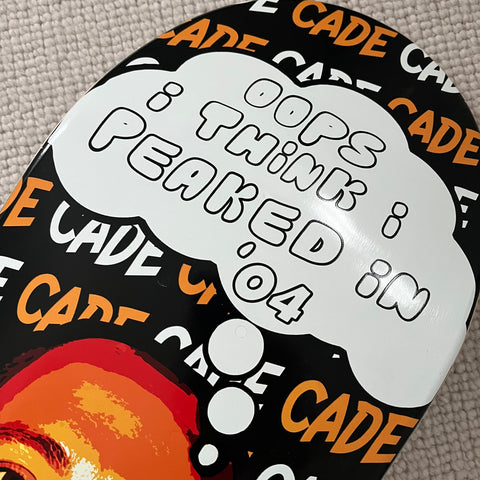 CADE CADE CADE
CADE
OOPS
i THiNK i
PEAKED iN
'04
CADE
CADE
CADE
CADE
CADE
CADE
CADE